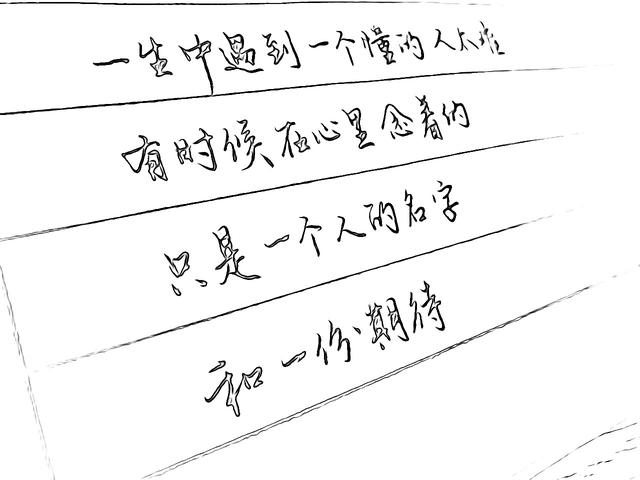 一生中遇到一个懂的人太难
有时候在心里念着的
只是一个人的名字
和一份期待